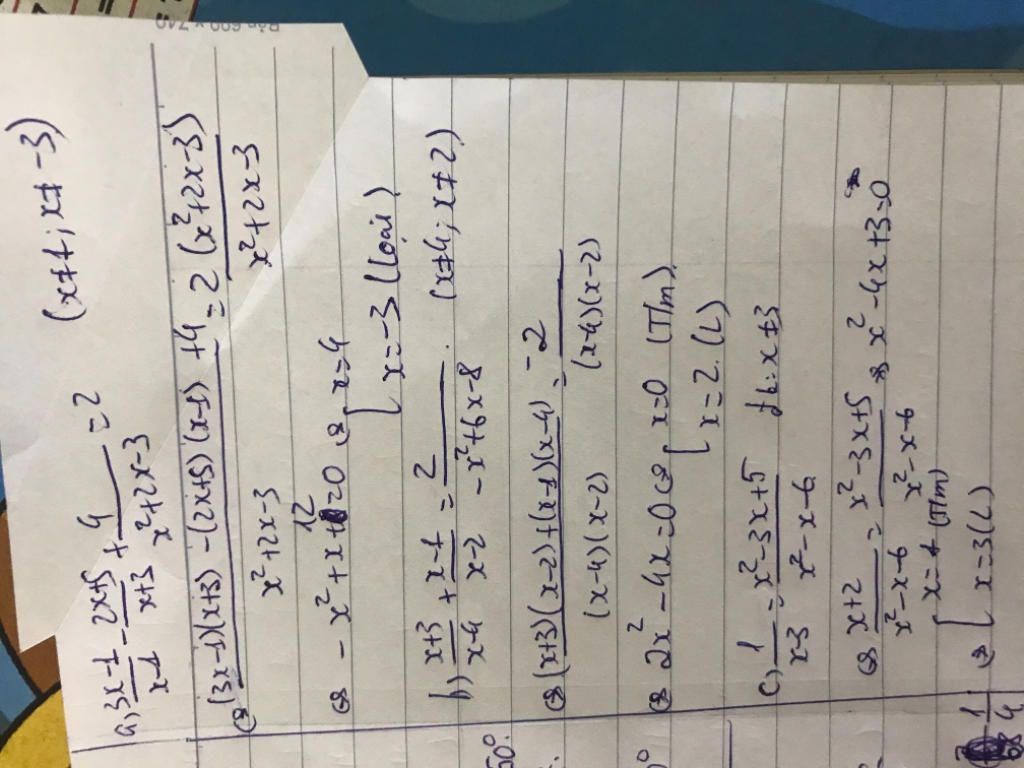 a) (3x-1)/(x-1) - (2x+5)/(x+3) + 4/(x²+2x-3) = 2 (x≠1; x≠-3)
⇔ ((3x-1)(x+3) - (2x+5)(x-1) + 4)/(x²+2x-3) = 2(x²+2x-3)/(x²+2x-3)
⇔ -x²+x+12=0 ⇔ [x=4
x=-3 (loại)
b) (x+3)/(x-4) + (x-1)/(x-2) = 2/(-x²+6x-8). (x≠4; x≠2)
⇔ ((x+3)(x-2)+(x-1)(x-4))/((x-4)(x-2)) = -2/((x-4)(x-2))
⇔ 2x²-4x=0 ⇔ [x=0 (T/m)
x=2. (L)
c) 1/(x-3) = (x²-3x+5)/(x²-x-6) đk: x≠3
⇔ (x+2)/(x²-x-6) = (x²-3x+5)/(x²-x-6) ⇔ x²-4x+3=0
⇔ [x=1 (T/m)
x=3(L)
1/4
50°